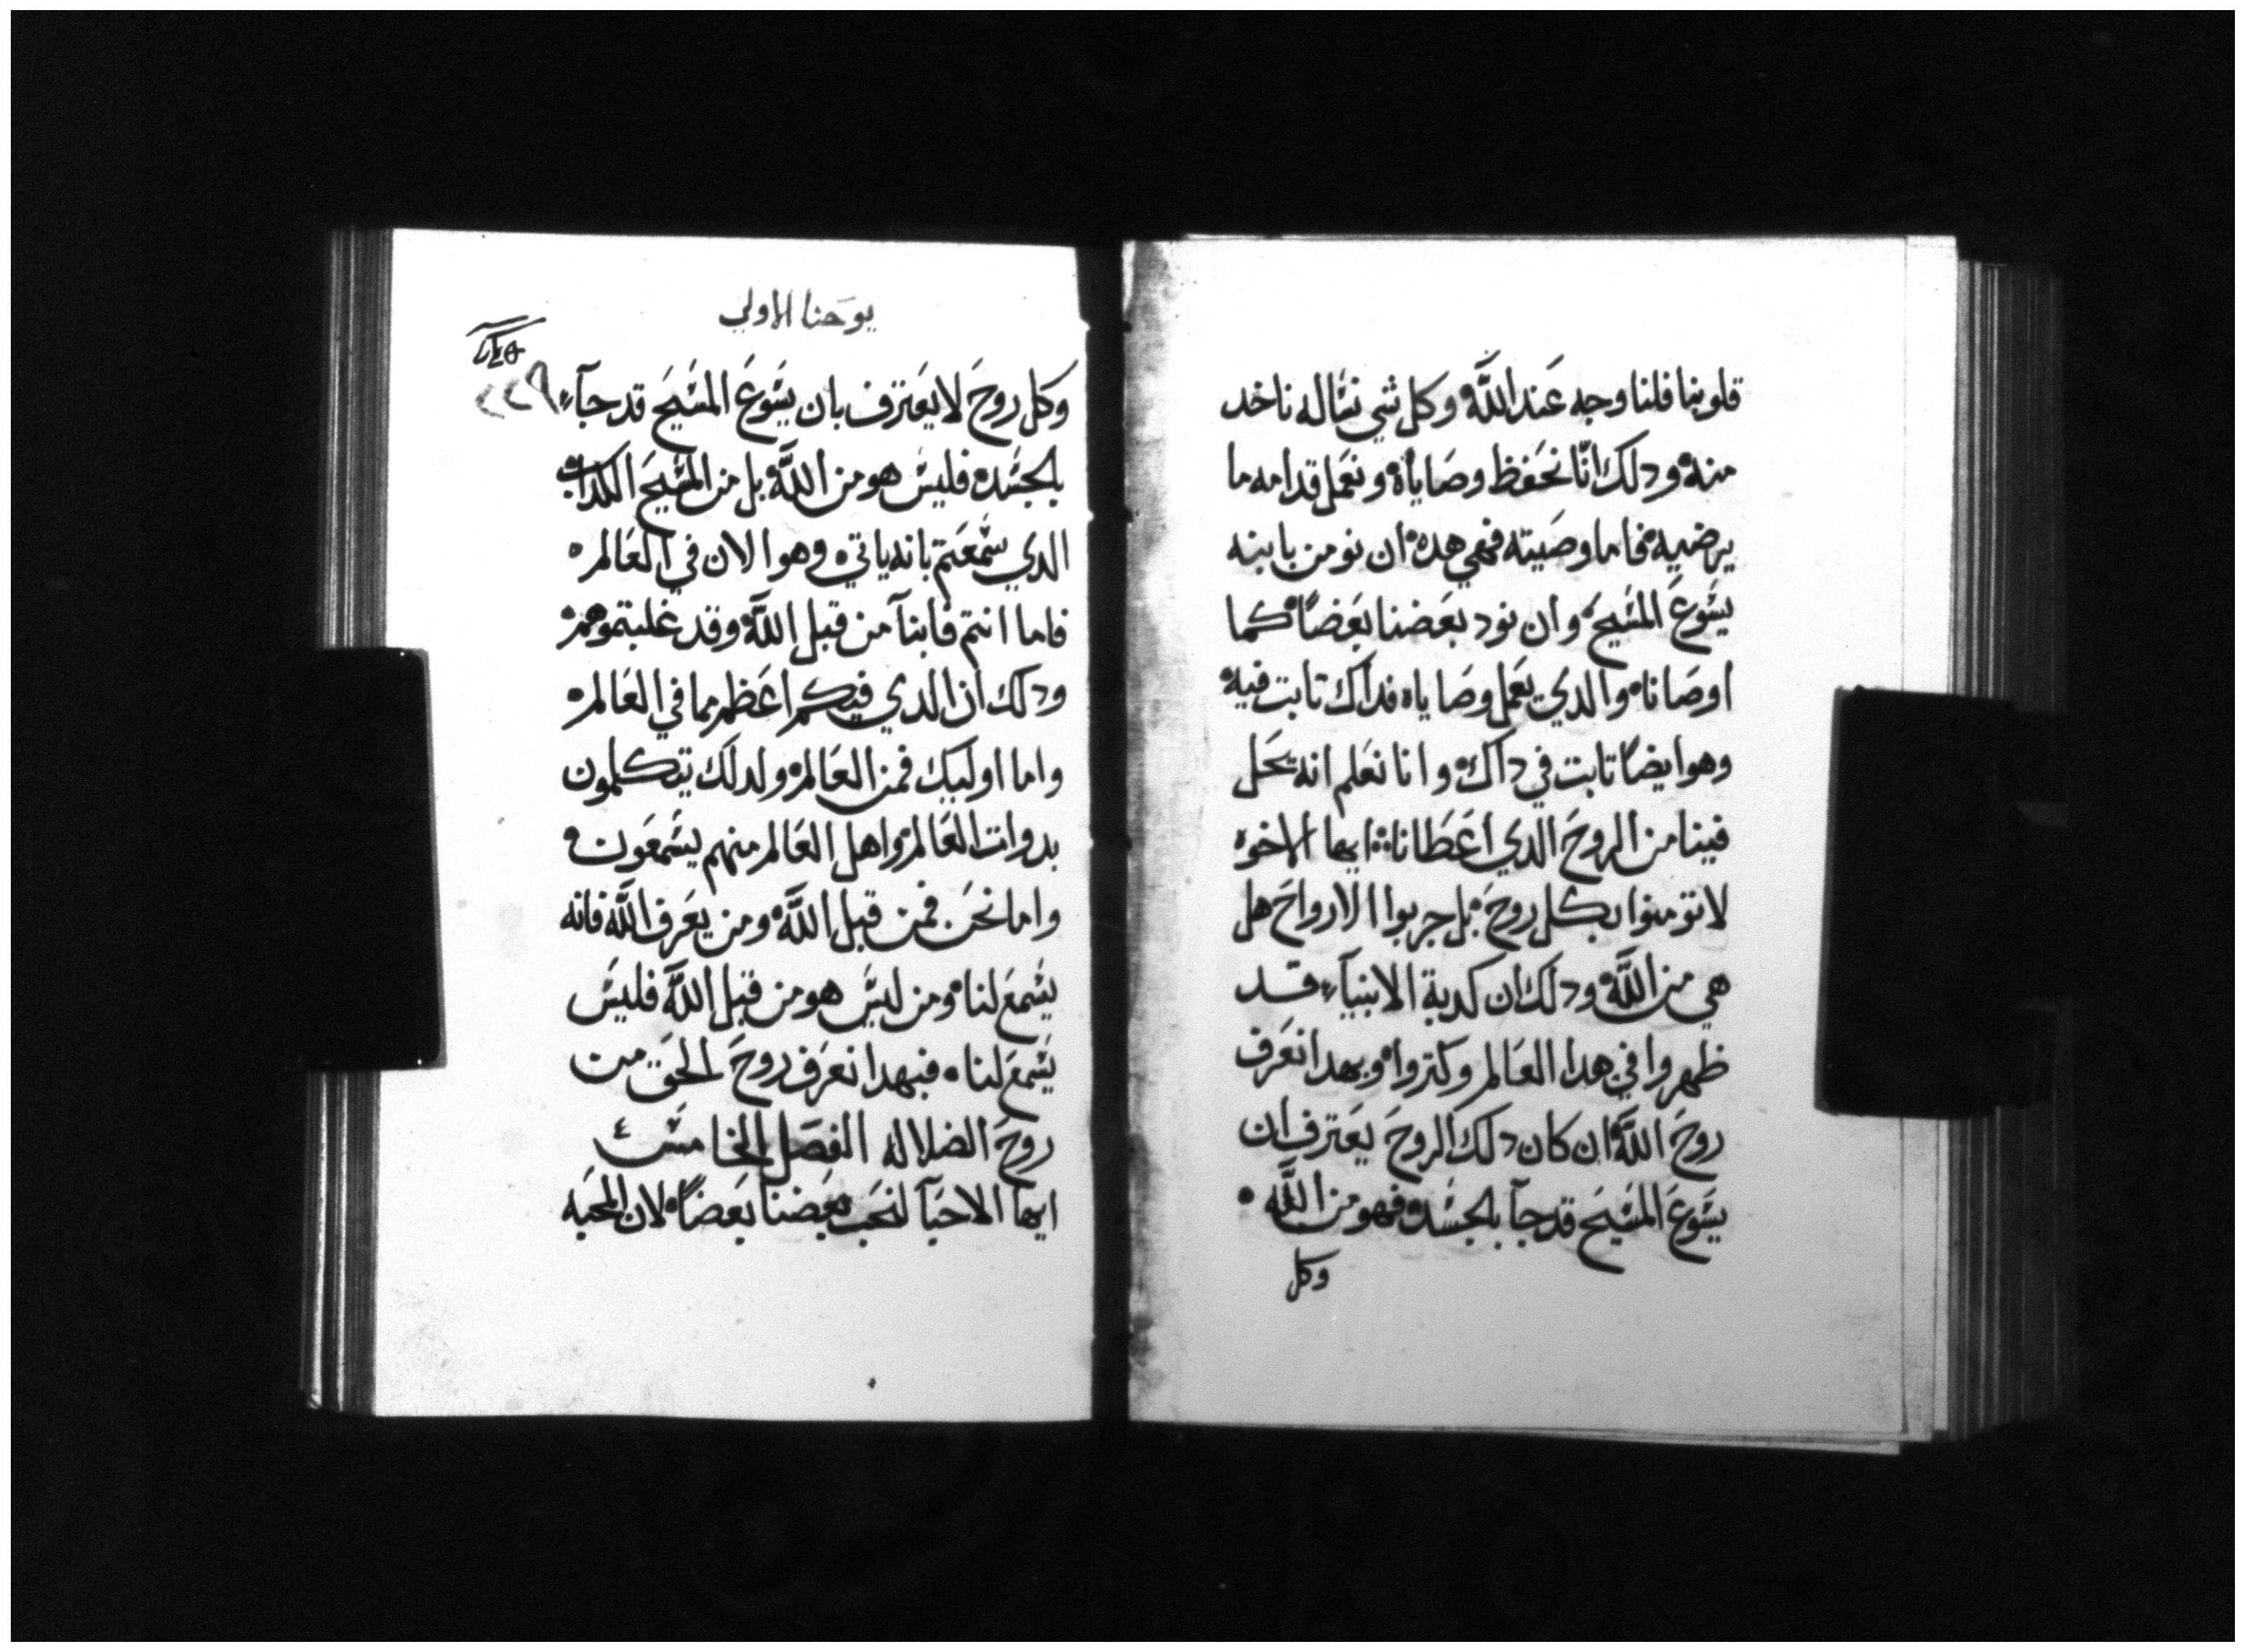 قلوبنا فلنا وجه عند الله وكل شي نساله ناخد
منه ودلك انا نحفظ وصاياه ونعمل قدامه ما
يرضيه فاما وصيته فهي هده ان نومن بابنه
يسوع المسيح وان نود بعضنا بعضاً كما
اوصانا والدي يعمل وصاياه فداك تابت فيه
وهو ايضاً تابت في داك وانا نعلم انه يحل
فينا من الروح الدي اعطانا ايها الاخوه
لا تومنوا بكل روح بل جربوا الارواح هل
هي من الله ودلك ان كدبة الانبيآء قد
ظهروا في هدا العالم وكتروا وبهدا نعرف
روح الله ان كان دلك الروح يعترف ان
يسوع المسيح قد جآ بالجسد فهو من الله
وكل
يوحنا الاولي
٢٢٩
وكل روح لا يعترف بان يسوع المسيح قد جآء
بالجسد فليس هو من الله بل من المسيح الكداب
الدي سمعتم بانه ياتي وهو الان في العالم
فاما انتم فابنآ من قبل الله وقد غلبتموهم
ودلك ان الدي فيكم اعظم مما في العالم
واما اوليك فمن العالم ولدلك يتكلمون
بدوات العالم واهل العالم منهم يسمعون
واما نحن فمن قبل الله ومن يعرف الله فانه
يسمع لنا ومن ليس هو من قبل الله فليس
يسمع لنا فبهدا نعرف روح الحق من
روح الضلاله الفصل الخامس ٤
ايها الاحبآ لنحب بعضنا بعضاً لان المحبه